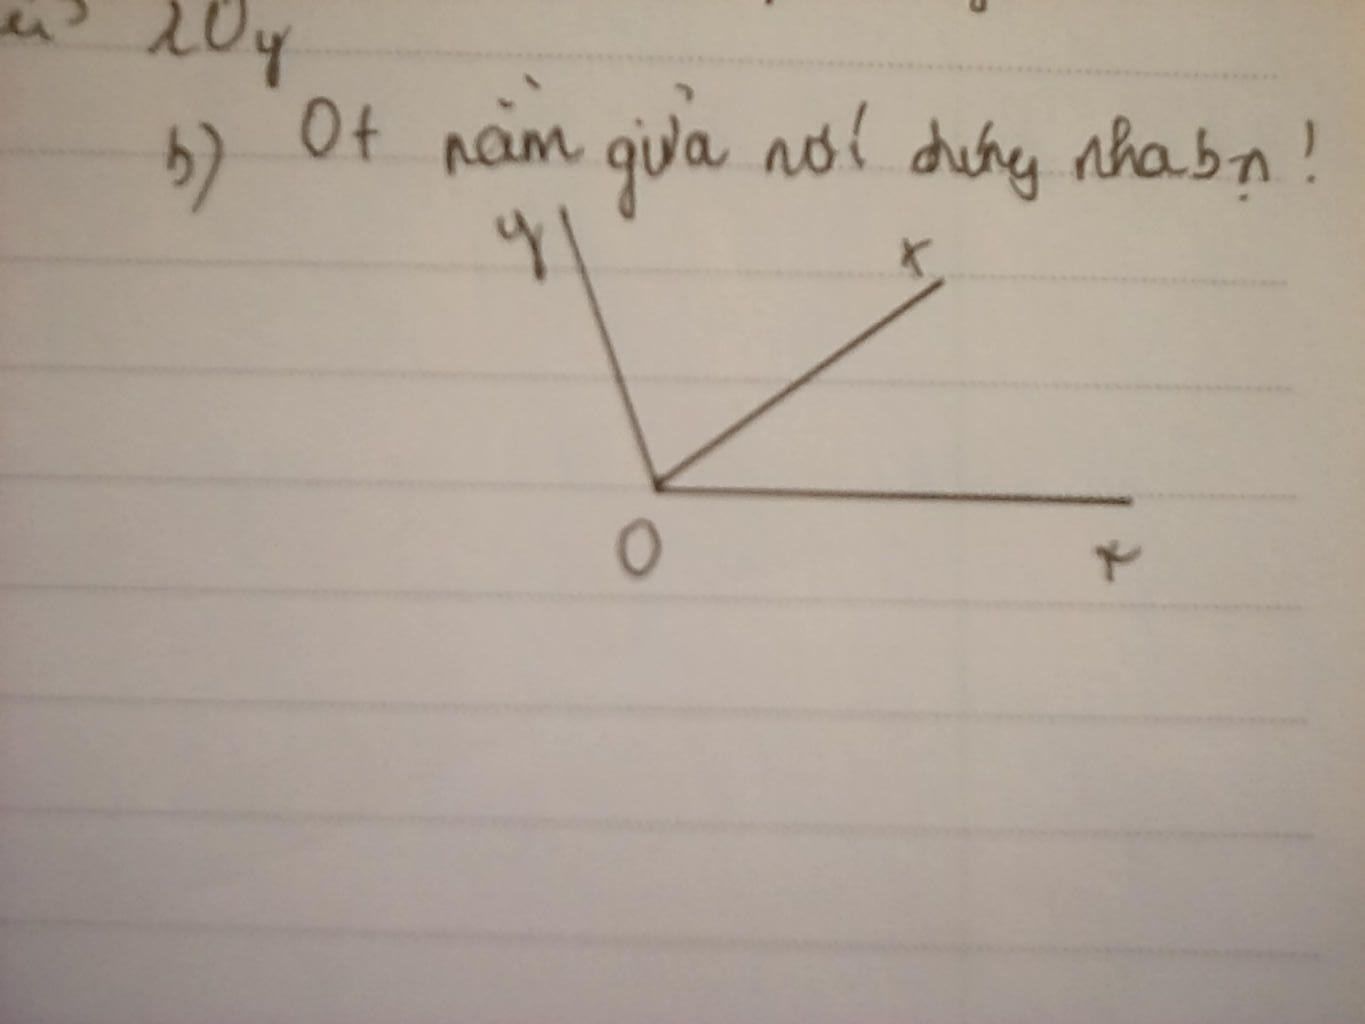 xOy
b) Ot nằm giữa nới đúng nha bn!
y
x
O
x